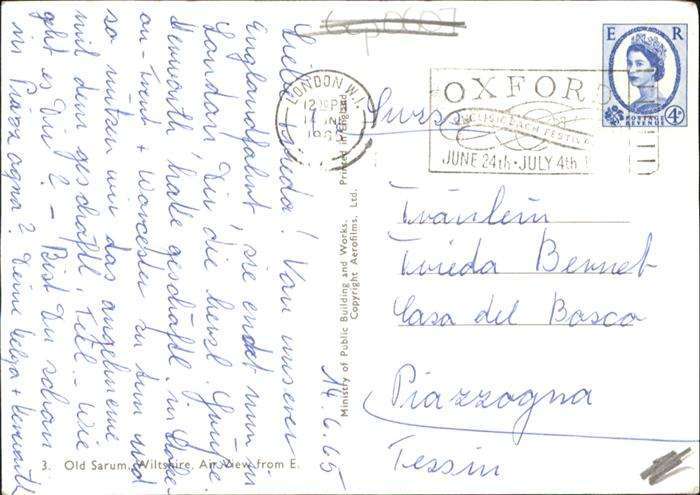 LONDON W.1.
12 15 PM
196
OXFORD
ENGLISH BACH FESTIVAL
JUNE 24th - JULY 4th
E R
POSTAGE
REVENUE
4D
Suisse
Fräulein
Frieda Bernet
Casa del Bosco
Piazzogna
Tessin
14.6.65
Liebe Frieda! Von unserer
Englandfahrt, sie endet nun in
London Dir die herzl. Grüsse.
Kenwarth hatte geschäftl. in Stoke-
on-Trent + Worcester zu tun und
so nützen wir das angenehme
mit dem geschäftl. Teil. Wie
geht es Dir? - Bist Du schon
in Piazzogna? Deine Helga + Kenwarth
Ministry of Public Building and Works.
Copyright Aerofilms. Ltd. Printed in England
3. Old Sarum, Wiltshire. Air View from E.